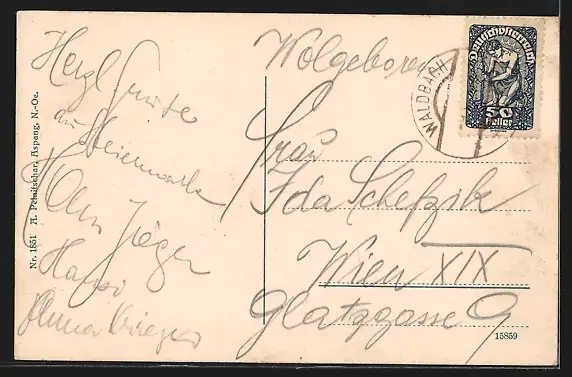 Herzl. Grüsse
aus Steiermark
Hansi
Nr. 1851 A. Pernitschar, Aspang, N.-Oe.
Wolgeboren
Frau
Ida Schefzik
Wien XIX
Glatzgasse 9
15859
WALDBACH
Deutschösterreich
50
Heller